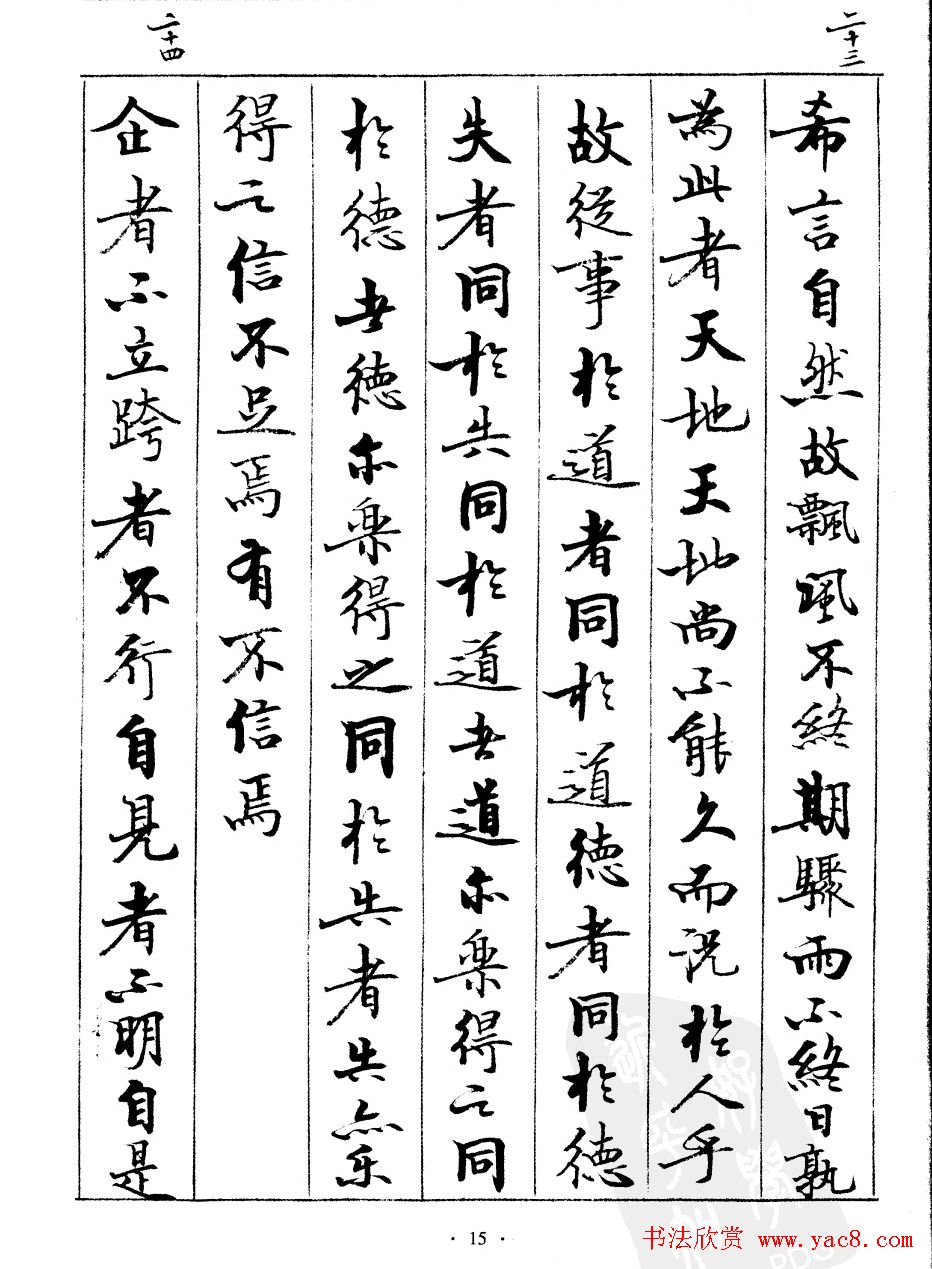 二十三
希言自然故飄風不終期驟雨不終日孰
為此者天地天地尚不能久而況於人乎
故從事於道者同於道德者同於德
失者同於失同於道者道亦樂得之同
於德者德亦樂得之同於失者失亦樂
得之信不足焉有不信焉
二十四
企者不立跨者不行自見者不明自是
· 15 ·
书法欣赏 www.yac8.com